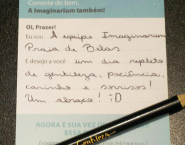 Corrente do bem.
A Imaginarium também!
Oi, Prazer!
Eu sou A equipe Imaginarium
Praia de Belas
E desejo a você um dia repleto
de gentileza, paciência,
carinho e sorrisos!
Um abraço! :D
AGORA É SUA VEZ